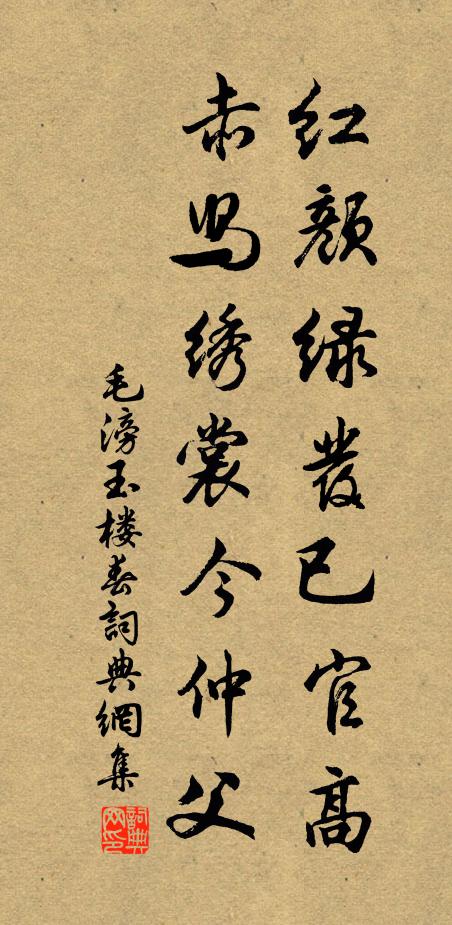 红颜绿發已官高
赤舄绣裳今仲父
毛滂玉楼春詞典網集
詞典网印